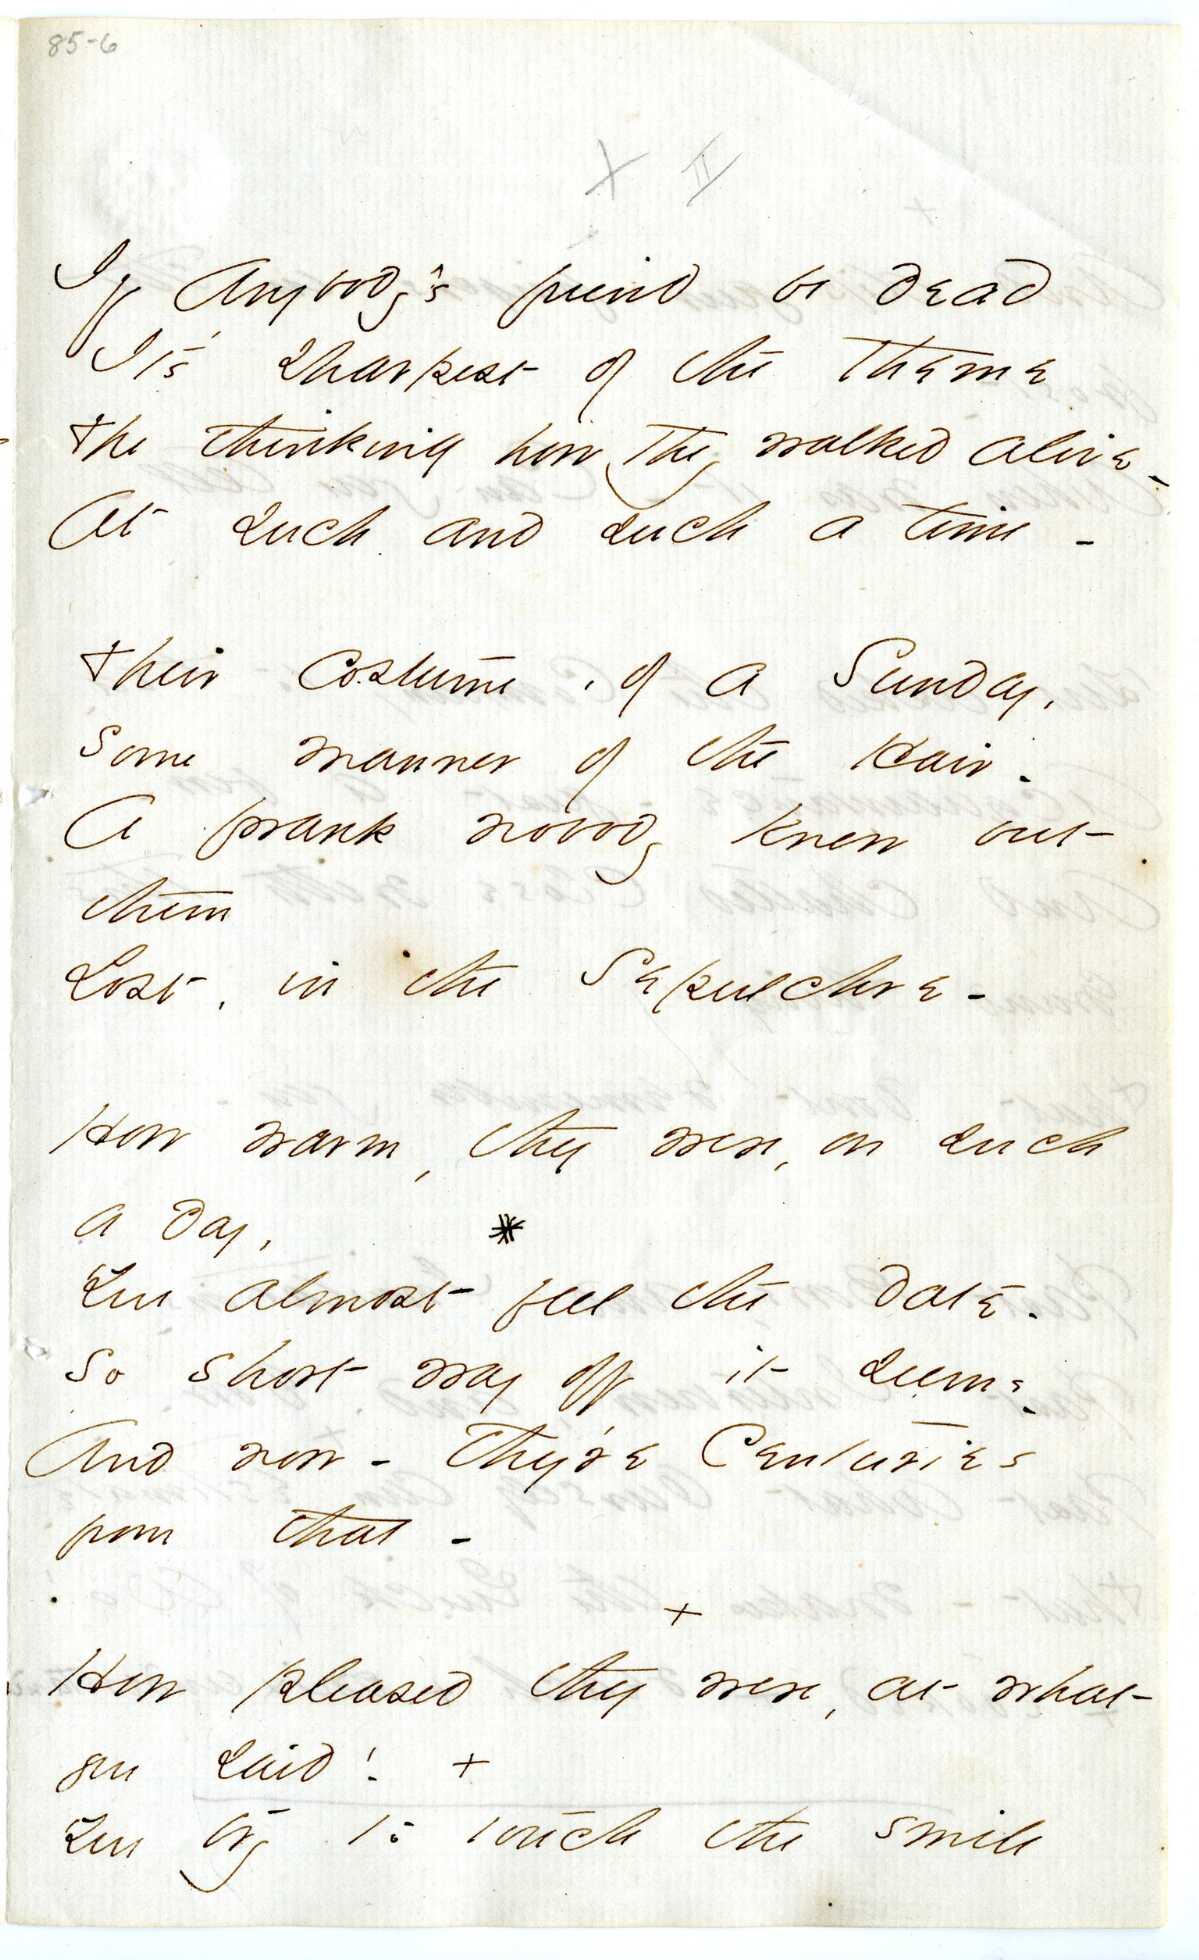 85-6
X II
If Anybody's friend be dead
It's sharpest of the theme
The thinking how they walked alive -
At such and such a time -
Their costume, of a Sunday,
Some manner of the Hair -
A prank nobody knew but
them
Lost, in the Sepulchre -
How warm, they were, on such
a day,
You almost feel the date -
So short way off it seems -
And now - they're Centuries
from that -
+
How pleased they were, at what
you said! +
You try to touch the smile